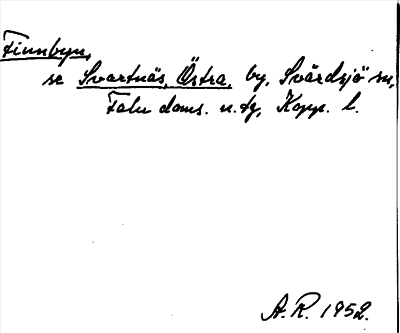 Finnbyn,
se Svartnäs, Östra, by, Svärdsjö sn,
Falu doms. n. tg, Kopp. l.
A. R. 1952.